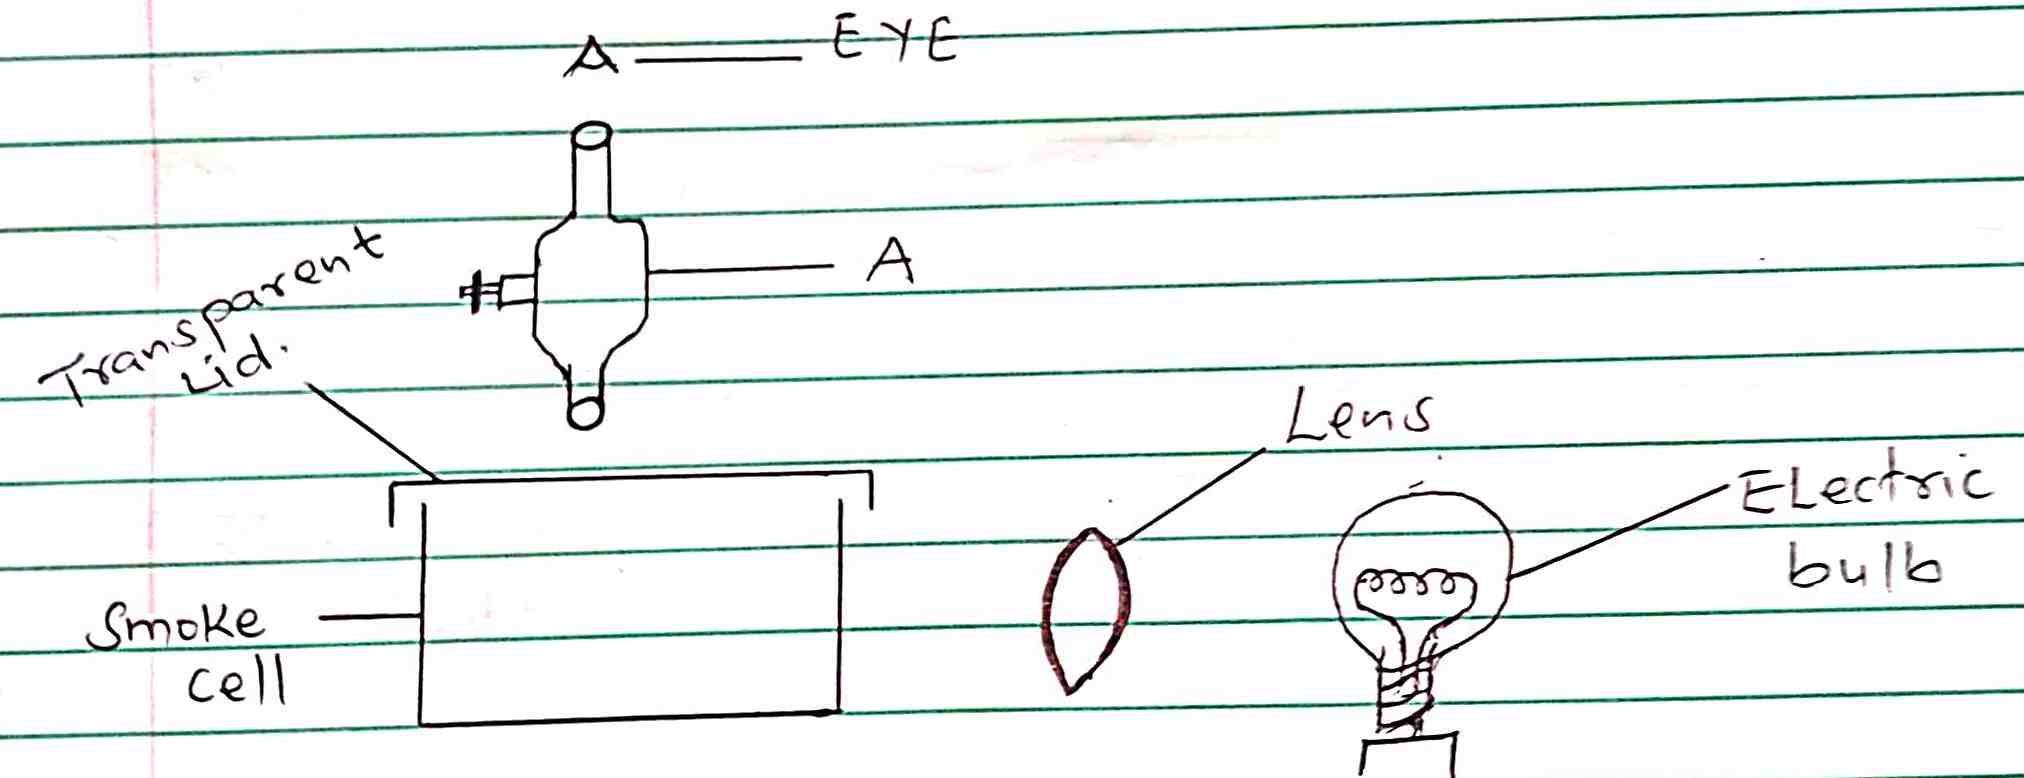 EYE
A
Transparent
Lid.
Lens
ELectric
bulb
Smoke
cell